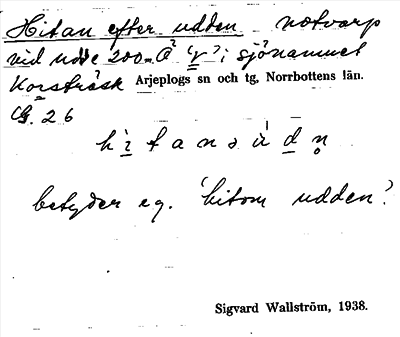 Hitan efter udden notvarp
vid udde 200 m Ö 'r' i sjönamnet
Korsträsk Arjeplogs sn och tg, Norrbottens län.
G. 26
hitanə údn̥
betyder eg. 'hitom udden'.
Sigvard Wallström, 1938.